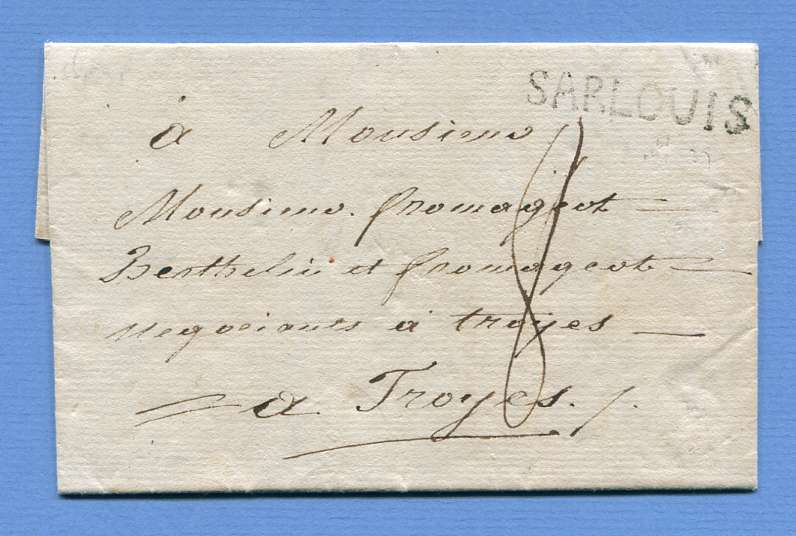 SARLOUIS
à Monsieur
8
Monsieur fromageot
Berthelin et fromageot
negociants a troyes
a Troyes.